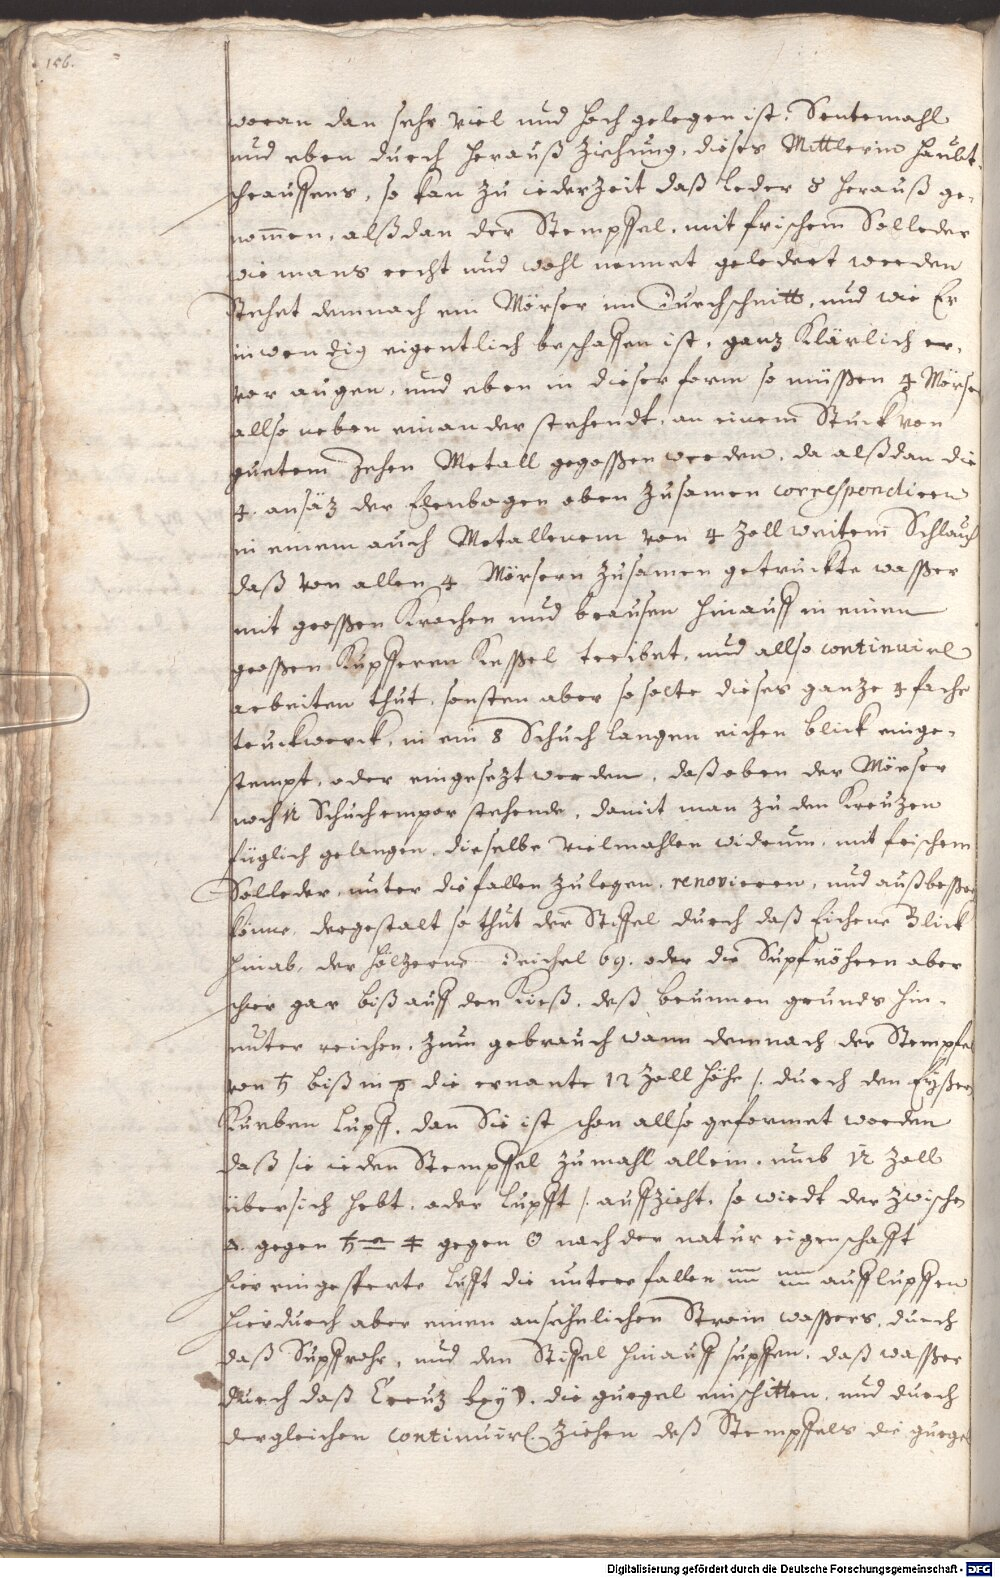 156.
woran dan sehr viel und hoch gelegen ist. Sentemahl
und eben durch herauß ziehung, dieses Mittlern haubt
schraußens, so kan zu iederzeit daß leder 8 herauß ge-
nom̄en, alßdan der Stempffel, mit frischem Solleder
wie mans recht und wohl nennet geledert werden
Stehet demnach ein Mörser im Durchschnitt, und wie Er
inwendig eigentlich beschaffen ist, ganz Klärlich
vor augen, und eben in dieser form so müssen 4 Mörser
allso neben einander stehendt, an einem Stuck von
guetem Zehen Metall gegossen werden, da alßdan die
4. ansäz der Elenbogen oben zusamen correspondieren
in einem auch Metallenem von 4 zoll weitem Schlauch
daß von allen 4 Mörsern zusamen getruckte wasser
mit grossen Krachen und brausen hinauff in einen
grossen Kupfferen Kessel treibet, und allso continuirl
arbeiten thut, sonsten aber so solte dieses ganze 4 fache
truckwerck, in ein 8 Schuch langen eichen blick einge-
stempt, oder eingesezt werden, daß oben der Mörser
noch 1½ Schuch empor stehende, damit man zu den Kreuzen
füglich gelangen, dieselbe vielmahlen widrum, mit frischem
Solleder, unter die fallen zulegen, renovieren, und außbessern
könne, dergestalt so thut der Stiffel durch daß Eichene Blick
hinab, der hölzerne Deichel 69. oder die Supfröhren aber
hier gar biß auff den Kieß, deß brunnen grunds hin-
unter reichen. Zum gebrauch wann demnach der Stempffel
von ♄ biß in die ernante 12 zoll höhe /. durch den Eyßeren
Kurben Lupff, dan Sie ist schon allso geformet worden
daß sie ieden Stempffel zumahl allein, umb 12 zoll
übersich hebt, oder Lupfft /. auffzieht, so wirdt der zwischen
gegen ♄ gegen ʘ nach der natur eigenschafft
hier eingesperte Lufft die untere fallen aufflupffen
hierdurch aber einen ansehelichen Strom wassers, durch
daß Supffrohr, und den Stiffel hinauff supffen, daß wasser
durch daß Creuz bey D. die gurgel einschitten, und durch
dergleichen continuirl. ziehen deß Stempffels die gurgel
Digitalisierung gefördert durch die Deutsche Forschungsgemeinschaft - DFG